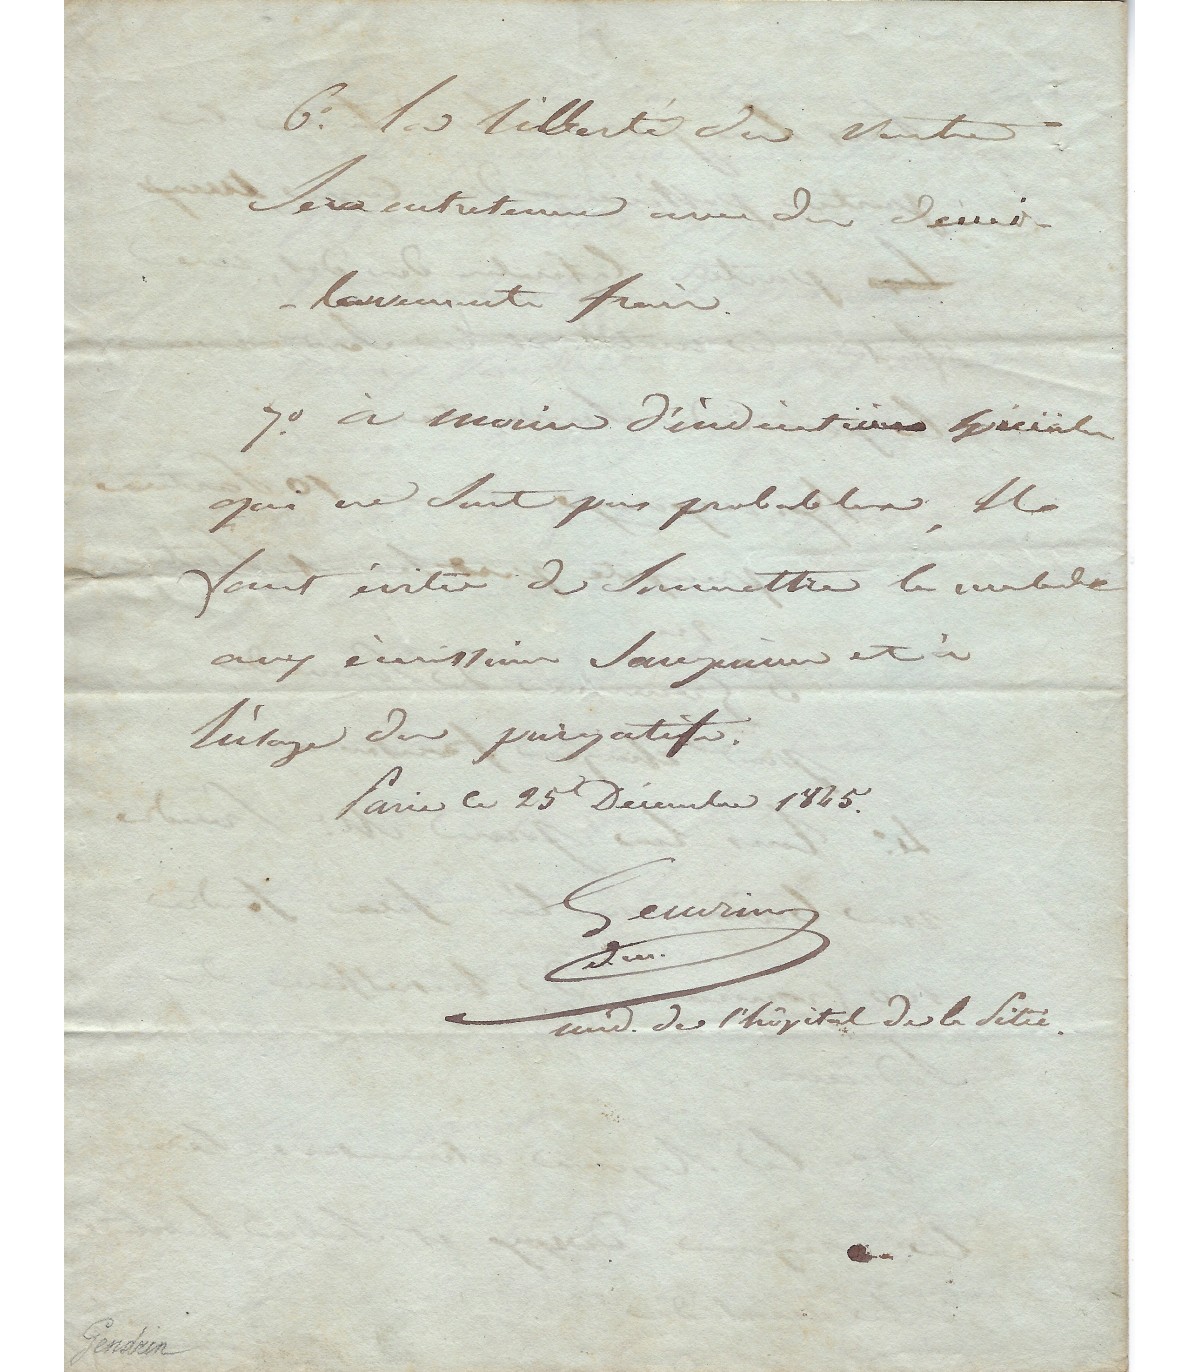 6° la liberté du ventre
sera entretenue avec des demi-
-lavements frais.
7° à moins d'indications spéciales
qui ne sont pas probables, il
faut éviter de soumettre le malade
aux émissions sanguines et à
l'usage des purgatifs.
Paris le 25 Décembre 1845.
Gendrin
d.m.
méd. de l'hôpital de la Pitié.
Gendrin